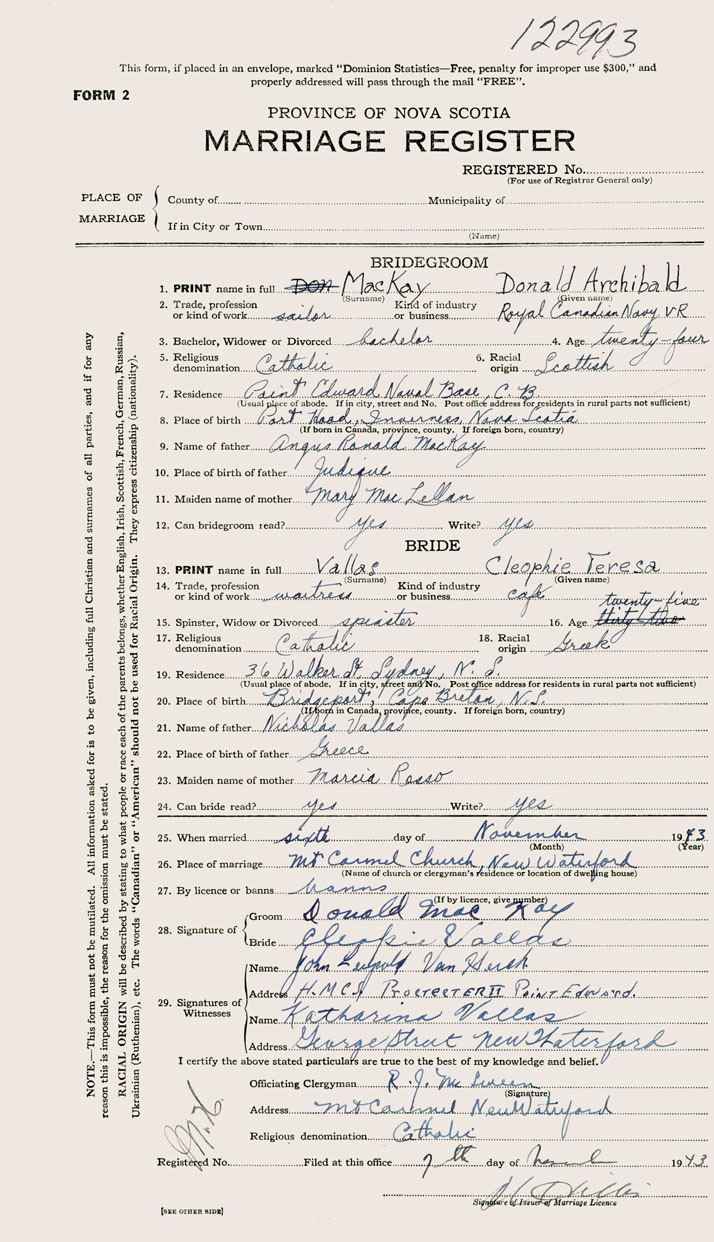 122993
This form, if placed in an envelope, marked "Dominion Statistics—Free, penalty for improper use $300," and
properly addressed will pass through the mail "FREE".
FORM 2
PROVINCE OF NOVA SCOTIA
MARRIAGE REGISTER
REGISTERED No.
(For use of Registrar General only)
PLACE OF MARRIAGE
County of Municipality of
If in City or Town
(Name)
BRIDEGROOM
1. PRINT name in full Don MacKay Donald Archibald
(Surname) (Given name)
2. Trade, profession or kind of work sailor Kind of industry or business Royal Canadian Navy VR
3. Bachelor, Widower or Divorced bachelor 4. Age twenty-four
5. Religious denomination Catholic 6. Racial origin Scottish
7. Residence Point Edward Naval Base, C.B.
(Usual place of abode. If in city, street and No. Post office address for residents in rural parts not sufficient)
8. Place of birth Port Hood, Inverness, Nova Scotia
(If born in Canada, province, county. If foreign born, country)
9. Name of father Angus Ronald MacKay
10. Place of birth of father Judique
11. Maiden name of mother Mary Mac Lellan
12. Can bridegroom read? yes Write? yes
BRIDE
13. PRINT name in full Vallas Cleophie Teresa
(Surname) (Given name)
14. Trade, profession or kind of work waitress Kind of industry or business cafe
twenty-five
15. Spinster, Widow or Divorced spinster 16. Age thirty two
17. Religious denomination Catholic 18. Racial origin Greek
19. Residence 36 Walker St. Sydney, N.S.
(Usual place of abode. If in city, street and No. Post office address for residents in rural parts not sufficient)
20. Place of birth Bridgeport, Cape Breton, N.S.
(If born in Canada, province, county. If foreign born, country)
21. Name of father Nicholas Vallas
22. Place of birth of father Greece
23. Maiden name of mother Marcia Rosso
24. Can bride read? yes Write? yes
25. When married sixth day of November 1943
(Month) (Year)
26. Place of marriage Mt Carmel Church, New Waterford
(Name of church or clergyman's residence or location of dwelling house)
27. By licence or banns banns
(If by licence, give number)
28. Signature of
Groom Donald Mac Kay
Bride Cleophie Vallas
29. Signatures of Witnesses
Name John Leopold Van
Address H.M.C.S. Protecter II Point Edward.
Name Katharina Vallas
Address George Street New Waterford
I certify the above stated particulars are true to the best of my knowledge and belief.
Officiating Clergyman R. J. Mc
(Signature)
Address Mt Carmel New Waterford
Religious denomination Catholic
Registered No. Filed at this office 7th day of 1943
Signature of Issuer of Marriage Licence
[SEE OTHER SIDE]
NOTE.—This form must not be mutilated. All information asked for is to be given, including full Christian and surnames of all parties, and if for any
reason this is impossible, the reason for the omission must be stated.
RACIAL ORIGIN will be described by stating to what people or race each of the parents belongs, whether English, Irish, Scottish, French, German, Russian,
Ukrainian (Ruthenian), etc. The words "Canadian" or "American" should not be used for Racial Origin. They express citizenship (nationality).